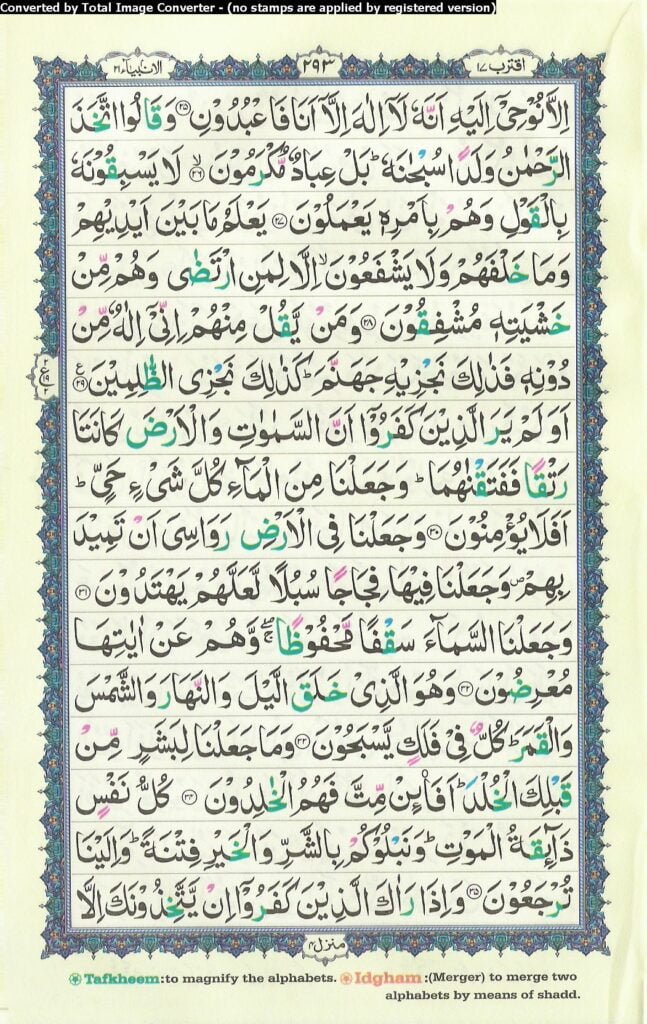 Converted by Total Image Converter - (no stamps are applied by registered version)
اقترب ١٧ ٢٩٣ الانبیاء ٢١
اِلَّا نُوْحِیْۤ اِلَیْهِ اَنَّهٗ لَاۤ اِلٰهَ اِلَّاۤ اَنَا فَاعْبُدُوْنِ ﴿٢٥﴾ وَقَالُوا اتَّخَذَ
الرَّحْمٰنُ وَلَدًا سُبْحٰنَهٗ ؕ بَلْ عِبَادٌ مُّكْرَمُوْنَ ﴿٢٦﴾ۙ لَا یَسْبِقُوْنَهٗ
بِالْقَوْلِ وَهُمْ بِاَمْرِهٖ یَعْمَلُوْنَ ﴿٢٧﴾ یَعْلَمُ مَا بَیْنَ اَیْدِیْهِمْ
وَمَا خَلْفَهُمْ وَلَا یَشْفَعُوْنَ ۙ اِلَّا لِمَنِ ارْتَضٰی وَهُمْ مِّنْ
خَشْیَتِهٖ مُشْفِقُوْنَ ﴿٢٨﴾ وَمَنْ یَّقُلْ مِنْهُمْ اِنِّیْۤ اِلٰهٌ مِّنْ
دُوْنِهٖ فَذٰلِكَ نَجْزِیْهِ جَهَنَّمَ ؕ كَذٰلِكَ نَجْزِی الظّٰلِمِیْنَ ﴿٢٩﴾ ع
اَوَلَمْ یَرَ الَّذِیْنَ كَفَرُوْۤا اَنَّ السَّمٰوٰتِ وَالْاَرْضَ كَانَتَا
رَتْقًا فَفَتَقْنٰهُمَا ؕ وَجَعَلْنَا مِنَ الْمَآءِ كُلَّ شَیْءٍ حَیٍّ ؕ
اَفَلَا یُؤْمِنُوْنَ ﴿٣٠﴾ وَجَعَلْنَا فِی الْاَرْضِ رَوَاسِیَ اَنْ تَمِیْدَ
بِهِمْ ۪ وَجَعَلْنَا فِیْهَا فِجَاجًا سُبُلًا لَّعَلَّهُمْ یَهْتَدُوْنَ ﴿٣١﴾
وَجَعَلْنَا السَّمَآءَ سَقْفًا مَّحْفُوْظًا ۚۖ وَّهُمْ عَنْ اٰیٰتِهَا
مُعْرِضُوْنَ ﴿٣٢﴾ وَهُوَ الَّذِیْ خَلَقَ الَّیْلَ وَالنَّهَارَ وَالشَّمْسَ
وَالْقَمَرَ ؕ كُلٌّ فِیْ فَلَكٍ یَّسْبَحُوْنَ ﴿٣٣﴾ وَمَا جَعَلْنَا لِبَشَرٍ مِّنْ
قَبْلِكَ الْخُلْدَ ؕ اَفَا۟ئِنْ مِّتَّ فَهُمُ الْخٰلِدُوْنَ ﴿٣٤﴾ كُلُّ نَفْسٍ
ذَآئِقَةُ الْمَوْتِ ؕ وَنَبْلُوْكُمْ بِالشَّرِّ وَالْخَیْرِ فِتْنَةً ؕ وَاِلَیْنَا
تُرْجَعُوْنَ ﴿٣٥﴾ وَاِذَا رَاٰكَ الَّذِیْنَ كَفَرُوْۤا اِنْ یَّتَّخِذُوْنَكَ اِلَّا
منزل ٤
Tafkheem :to magnify the alphabets. Idgham :(Merger) to merge two
alphabets by means of shadd.